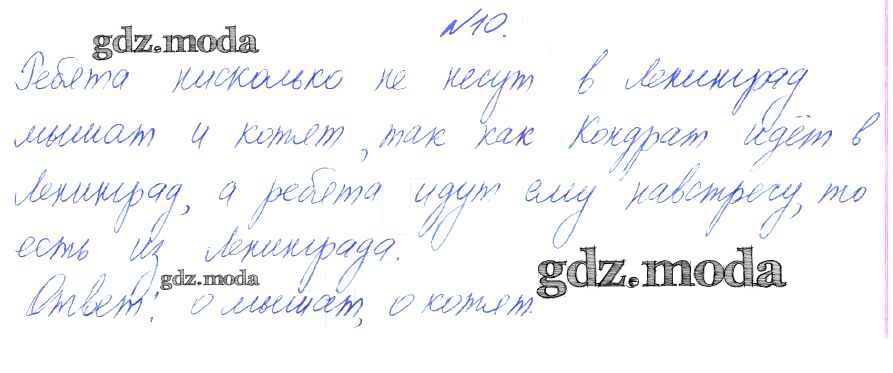 №10.
gdz.moda
Ребята нисколько не несут в Ленинград
мышат и котят, так как Кондрат идёт в
Ленинград, а ребята идут ему навстречу, то
есть из Ленинграда.
gdz.moda
gdz.moda
Ответ: 0 мышат, 0 котят.